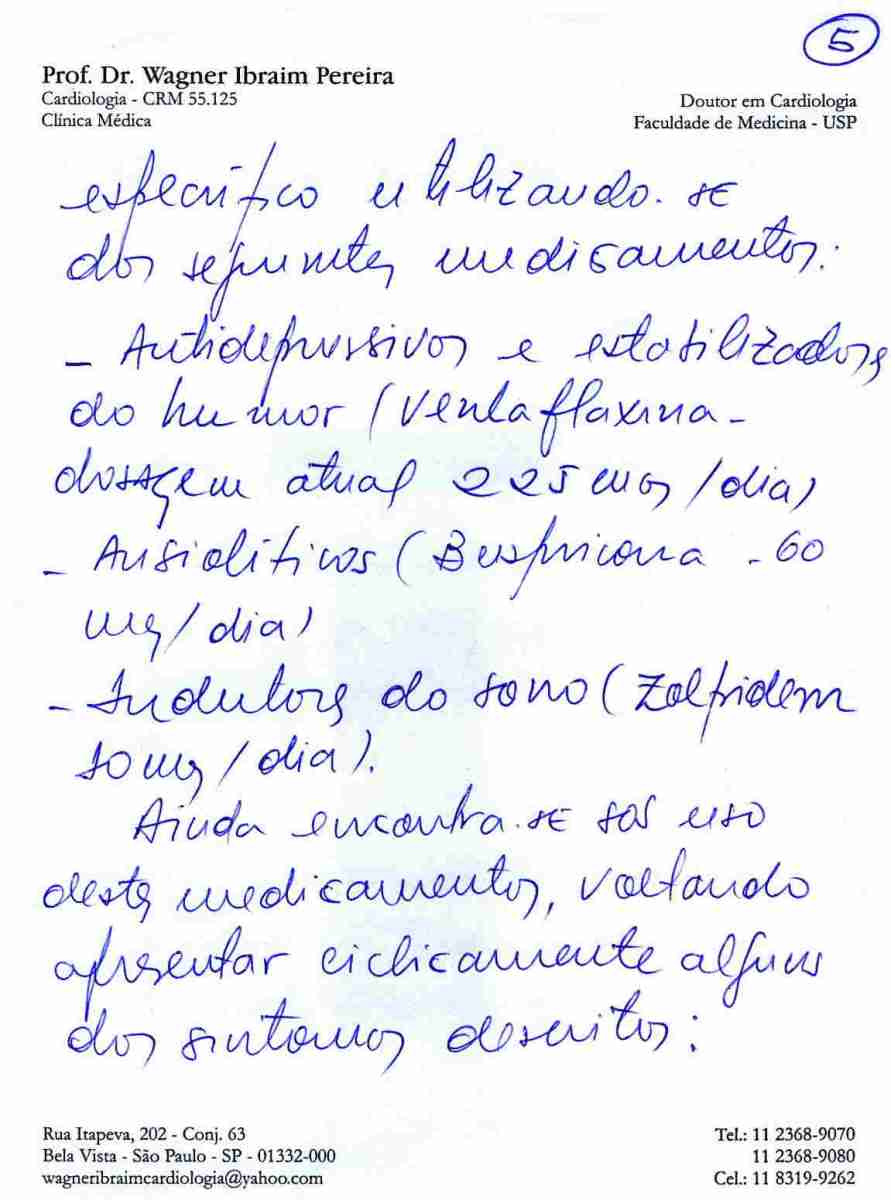 5
Prof. Dr. Wagner Ibraim Pereira
Cardiologia - CRM 55.125
Clínica Médica
Doutor em Cardiologia
Faculdade de Medicina - USP
específico utilizando-se
dos seguintes medicamentos:
- Antidepressivos e estabilizadores
do humor (Venlaflaxina -
dosagem atual 225 mgs/dia)
- Ansiolíticos (Buspirona - 60
mg/dia)
- Indutores do sono (Zolpidem
10 mg/dia).
Ainda encontra-se sob uso
destes medicamentos, voltando
apresentar ciclicamente alguns
dos sintomas descritos:
Rua Itapeva, 202 - Conj. 63
Bela Vista - São Paulo - SP - 01332-000
wagneribraimcardiologia@yahoo.com
Tel.: 11 2368-9070
11 2368-9080
Cel.: 11 8319-9262